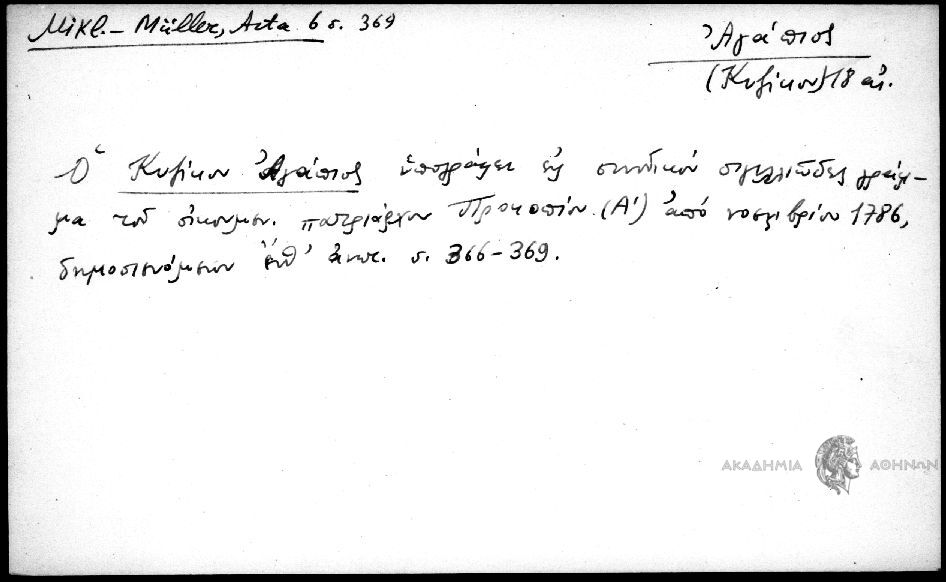 Mikl.- Müller, Acta 6 σ. 369
Ἀγάπιος
(Κυζίκου) 18 αἰ.
Ὁ Κυζίκου Ἀγάπιος ὑπογράφει εἰς συνοδικόν σιγιλλιῶδες γράμ-
μα τοῦ οἰκουμεν. πατριάρχου Προκοπίου (Α') ἀπό νοεμβρίου 1786,
δημοσιευόμενον ἔνθ' ἀνωτ. σ. 366-369.
ΑΚΑΔΗΜΙΑ ΑΘΗΝΩΝ